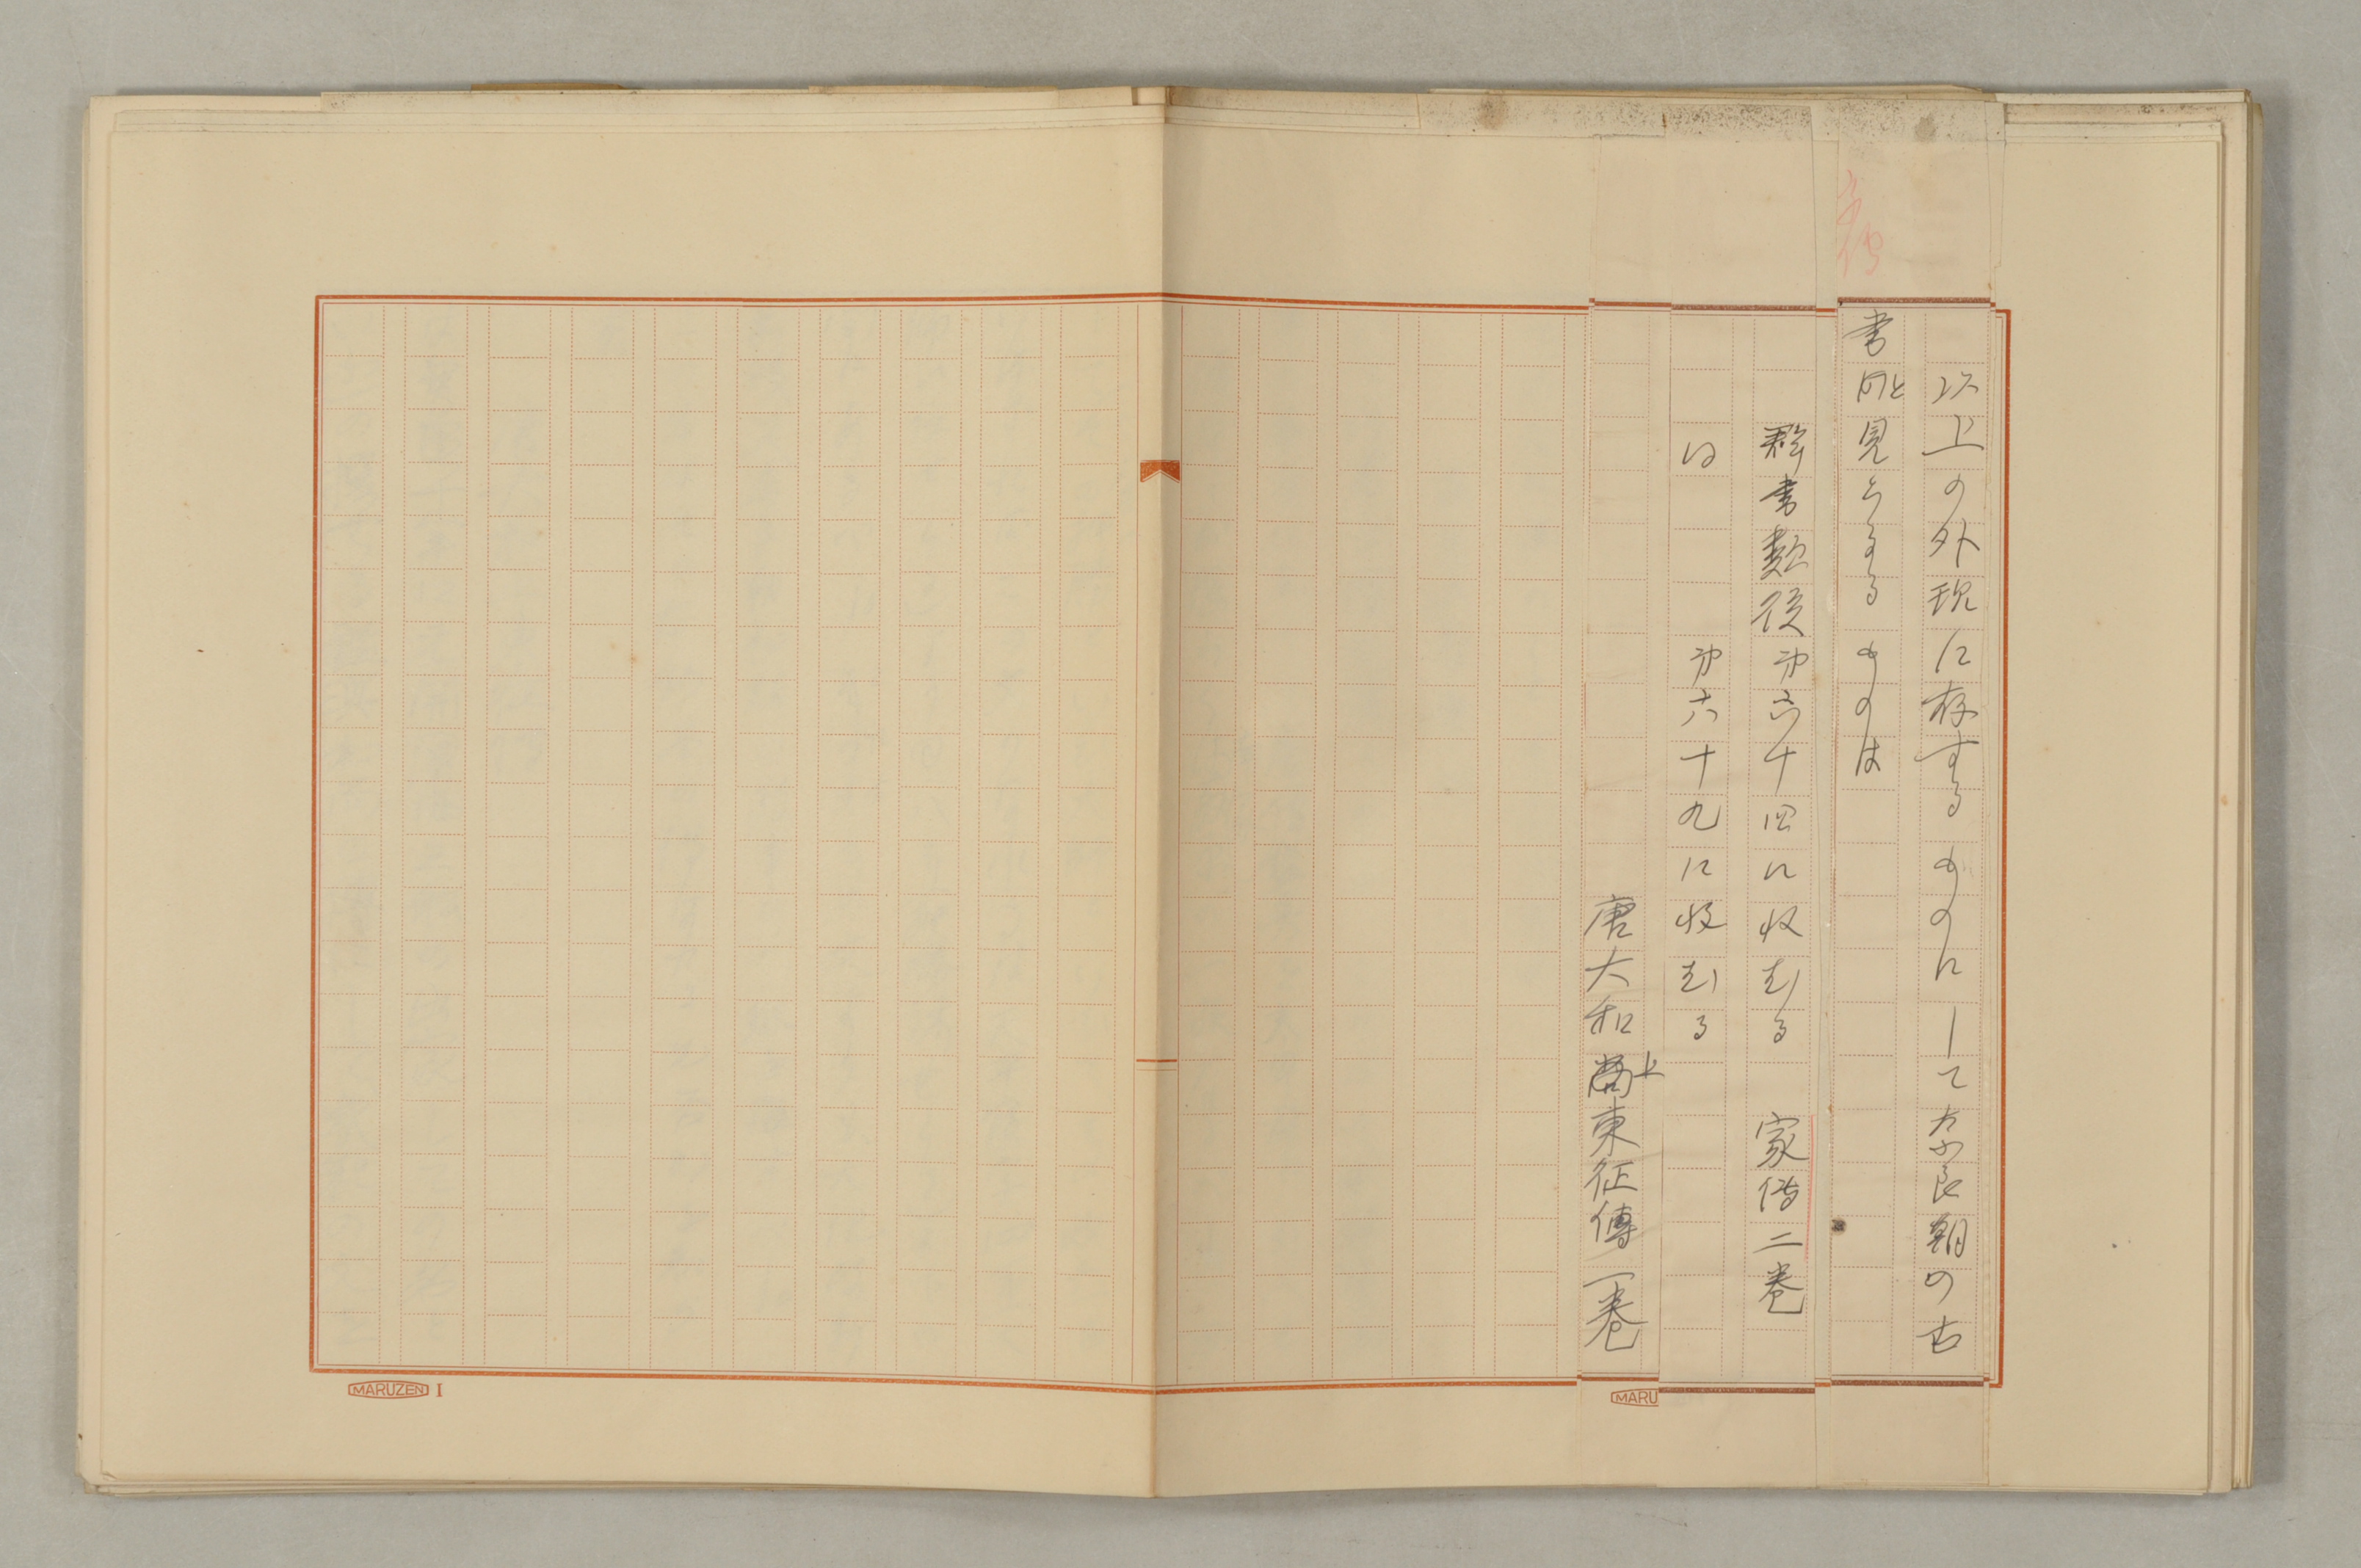 以上の外現に存するものにして奈良朝の古
書と見らるるものは
群書類従第六十四に収むる 家傳二巻
同 第六十九に収むる
唐大和上東征傳一巻
MARU
MARUZEN I